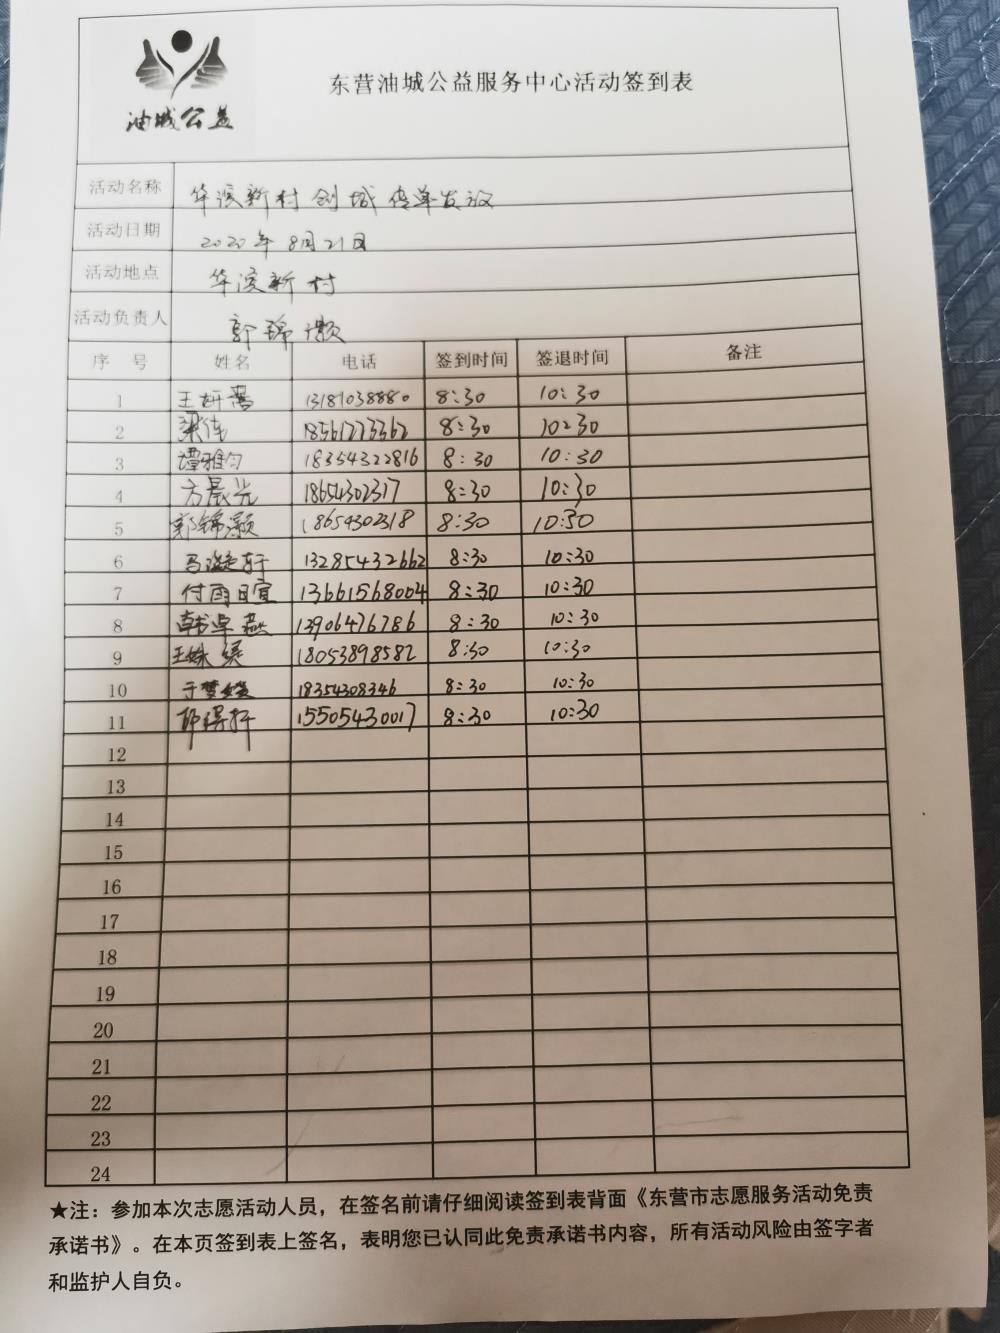 油城公益
东营油城公益服务中心活动签到表
活动名称 华滨新村 创城 传单发放
活动日期 2020年 8月21日
活动地点 华滨新村
活动负责人 郭锦灏
序 号 姓名 电话 签到时间 签退时间 备注
1 王妍 13181038880 8:30 10:30
2 梁伟 18561273362 8:30 10:30
3 谭雅匀 18354322816 8:30 10:30
4 方晨光 18654302317 8:30 10:30
5 郭锦灏 18654302318 8:30 10:30
6 马凝轩 13285432662 8:30 10:30
7 付雨宣 13661568004 8:30 10:30
8 韩卓燕 13906476786 8:30 10:30
9 王姝 18053898582 8:30 10:30
10 于梦 18354308346 8:30 10:30
11 15505430017 8:30 10:30
12
13
14
15
16
17
18
19
20
21
22
23
24
★注：参加本次志愿活动人员，在签名前请仔细阅读签到表背面《东营市志愿服务活动免责
承诺书》。在本页签到表上签名，表明您已认同此免责承诺书内容，所有活动风险由签字者
和监护人自负。